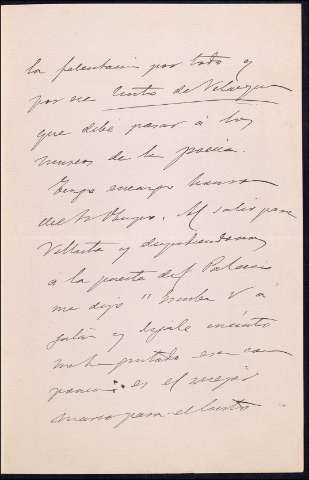 la felicitacion por todo y
por ese Cristo de Velazquez
que debe pasar á los
museos de la poesia.
Tengo encargo
del Sr Obispo. Al salir para
Villalta y despidiendome
á la puerta del Palacio
me dijo "Escriba V á
y digale cuánto
me ha gustado esa com
posicion: es el mejor
marco para el lienzo